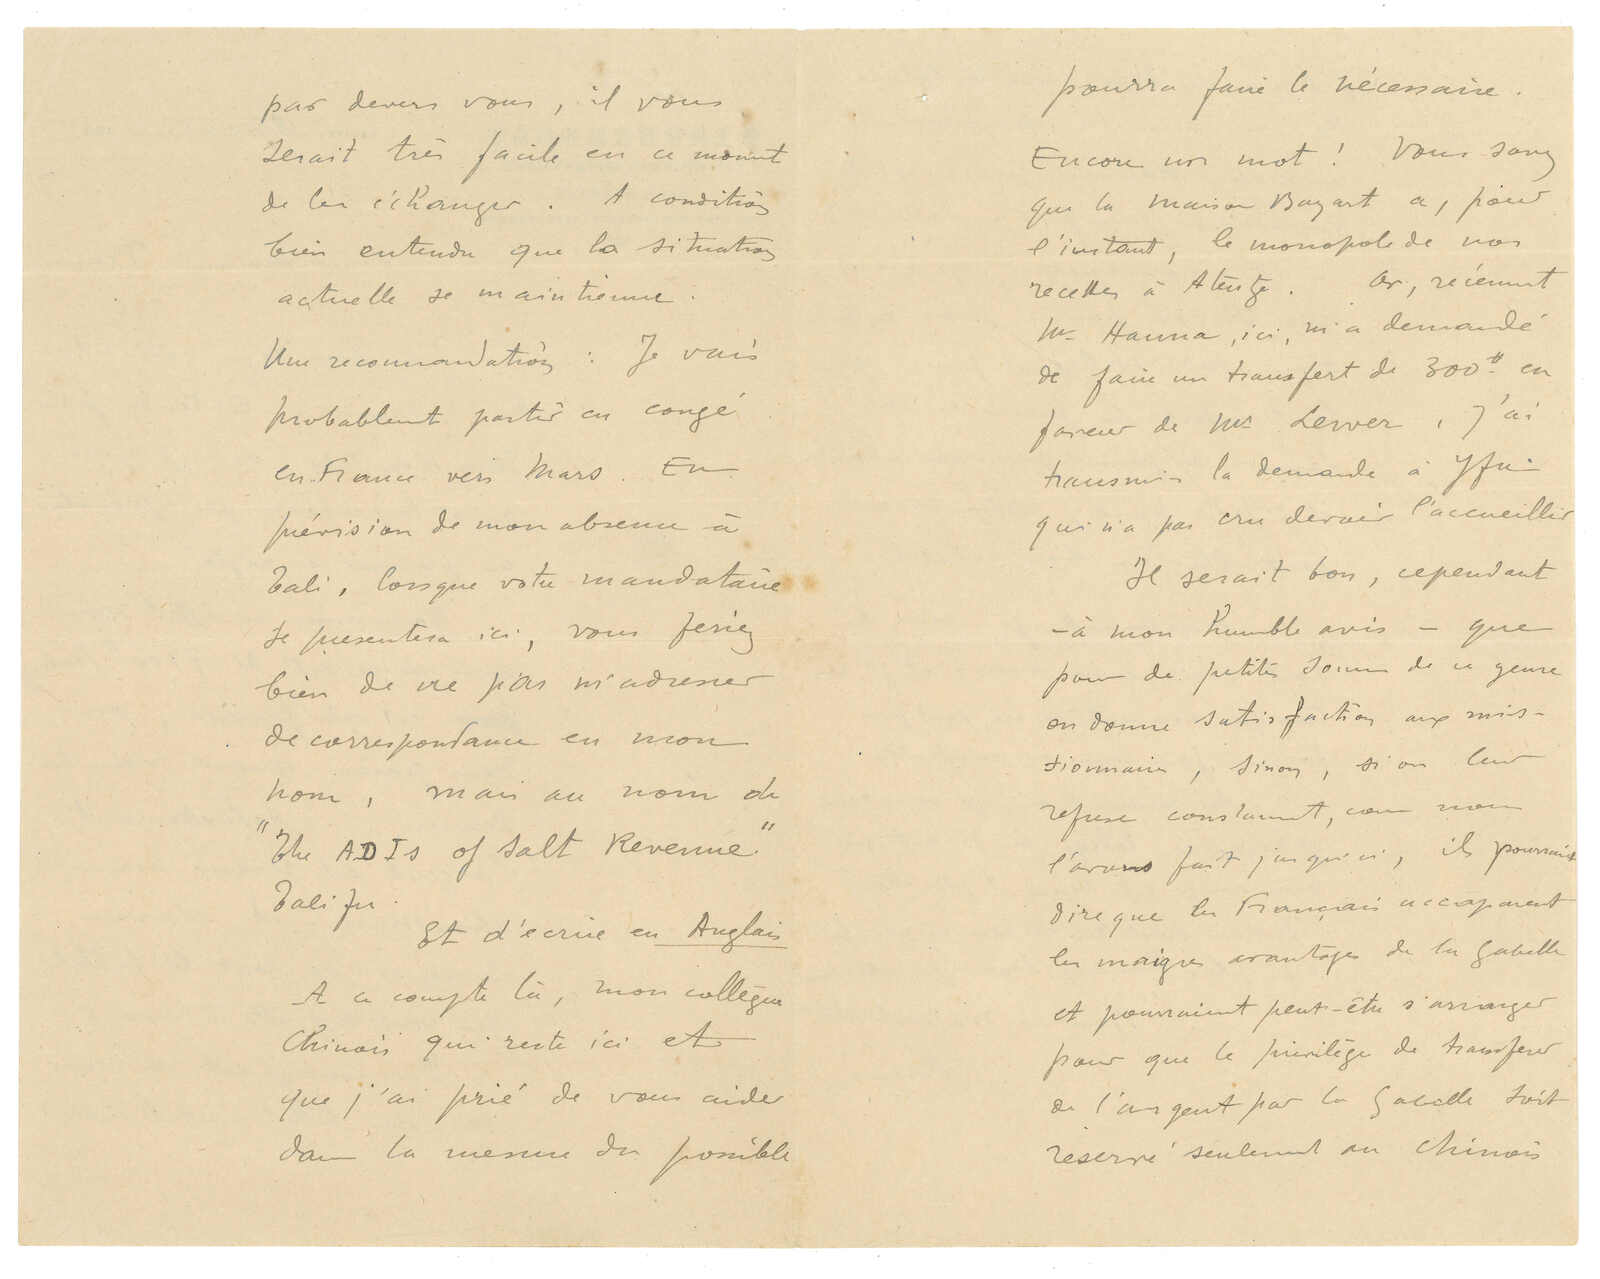 par devers vous, il vous
serait très facile en ce momnt
de les échanger. A condition
bien entendu que la situation
actuelle se maintienne.
Une recommandation : Je vais
probablemt partir en congé
en France vers Mars. En
prévision de mon absence à
Tali, lorsque votre mandataire
se presentera ici, vous feriez
bien de ne pas m'adresser
de correspondance en mon
nom, mais au nom de
"The ADIs of Salt Revenue"
Talifu.
Et d'écrire en Anglais
A ce compte là, mon collègue
Chinois qui reste ici et
que j'ai prié de vous aider
dans la mesure du possible
pourra faire le nécessaire.
Encore un mot ! Vous savez
que la maison Bayart a, pour
l'instant, le monopole de nos
recettes à Atentze. Or, récemmt
Mr Hanna, ici, m'a demandé
de faire un transfert de 300 en
faveur de Mr Lewer, j'ai
transmis la demande à
qui n'a pas cru devoir l'accueillir
Il serait bon, cependant
- à mon humble avis - que
pour de petites sommes de ce genre
on donne satisfaction aux mis-
sionnaires, sinon, si on leur
refuse constammt, comme nous
l'avons fait jusqu'ici, ils pourraient
dire que les Français accaparent
les maigres avantages de la Gabelle
et pourraient peut-être s'arranger
pour que le privilège de transférer
de l'argent par la Gabelle soit
réservé seulemnt au Chinois